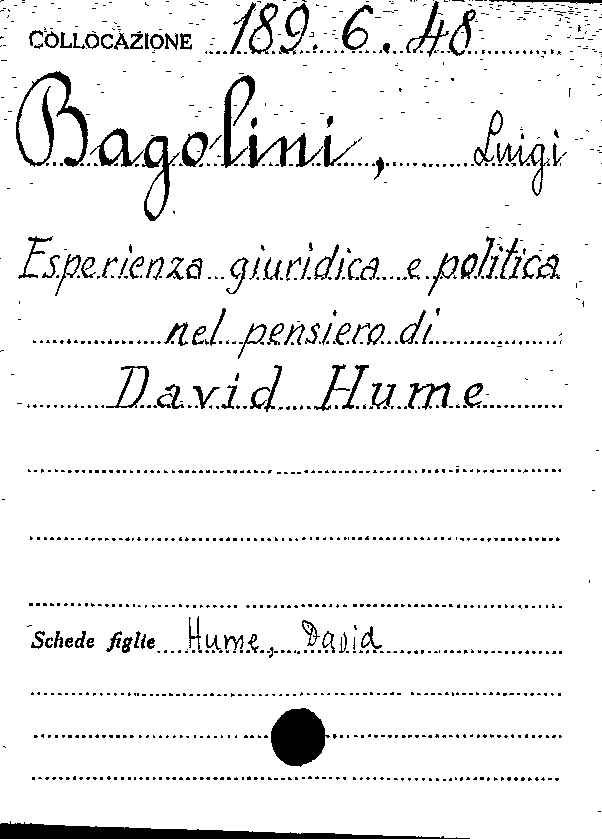 COLLOCAZIONE 189.6.48
Bagolini, Luigi
Esperienza giuridica e politica
nel pensiero di
David Hume
Schede figlie Hume, David